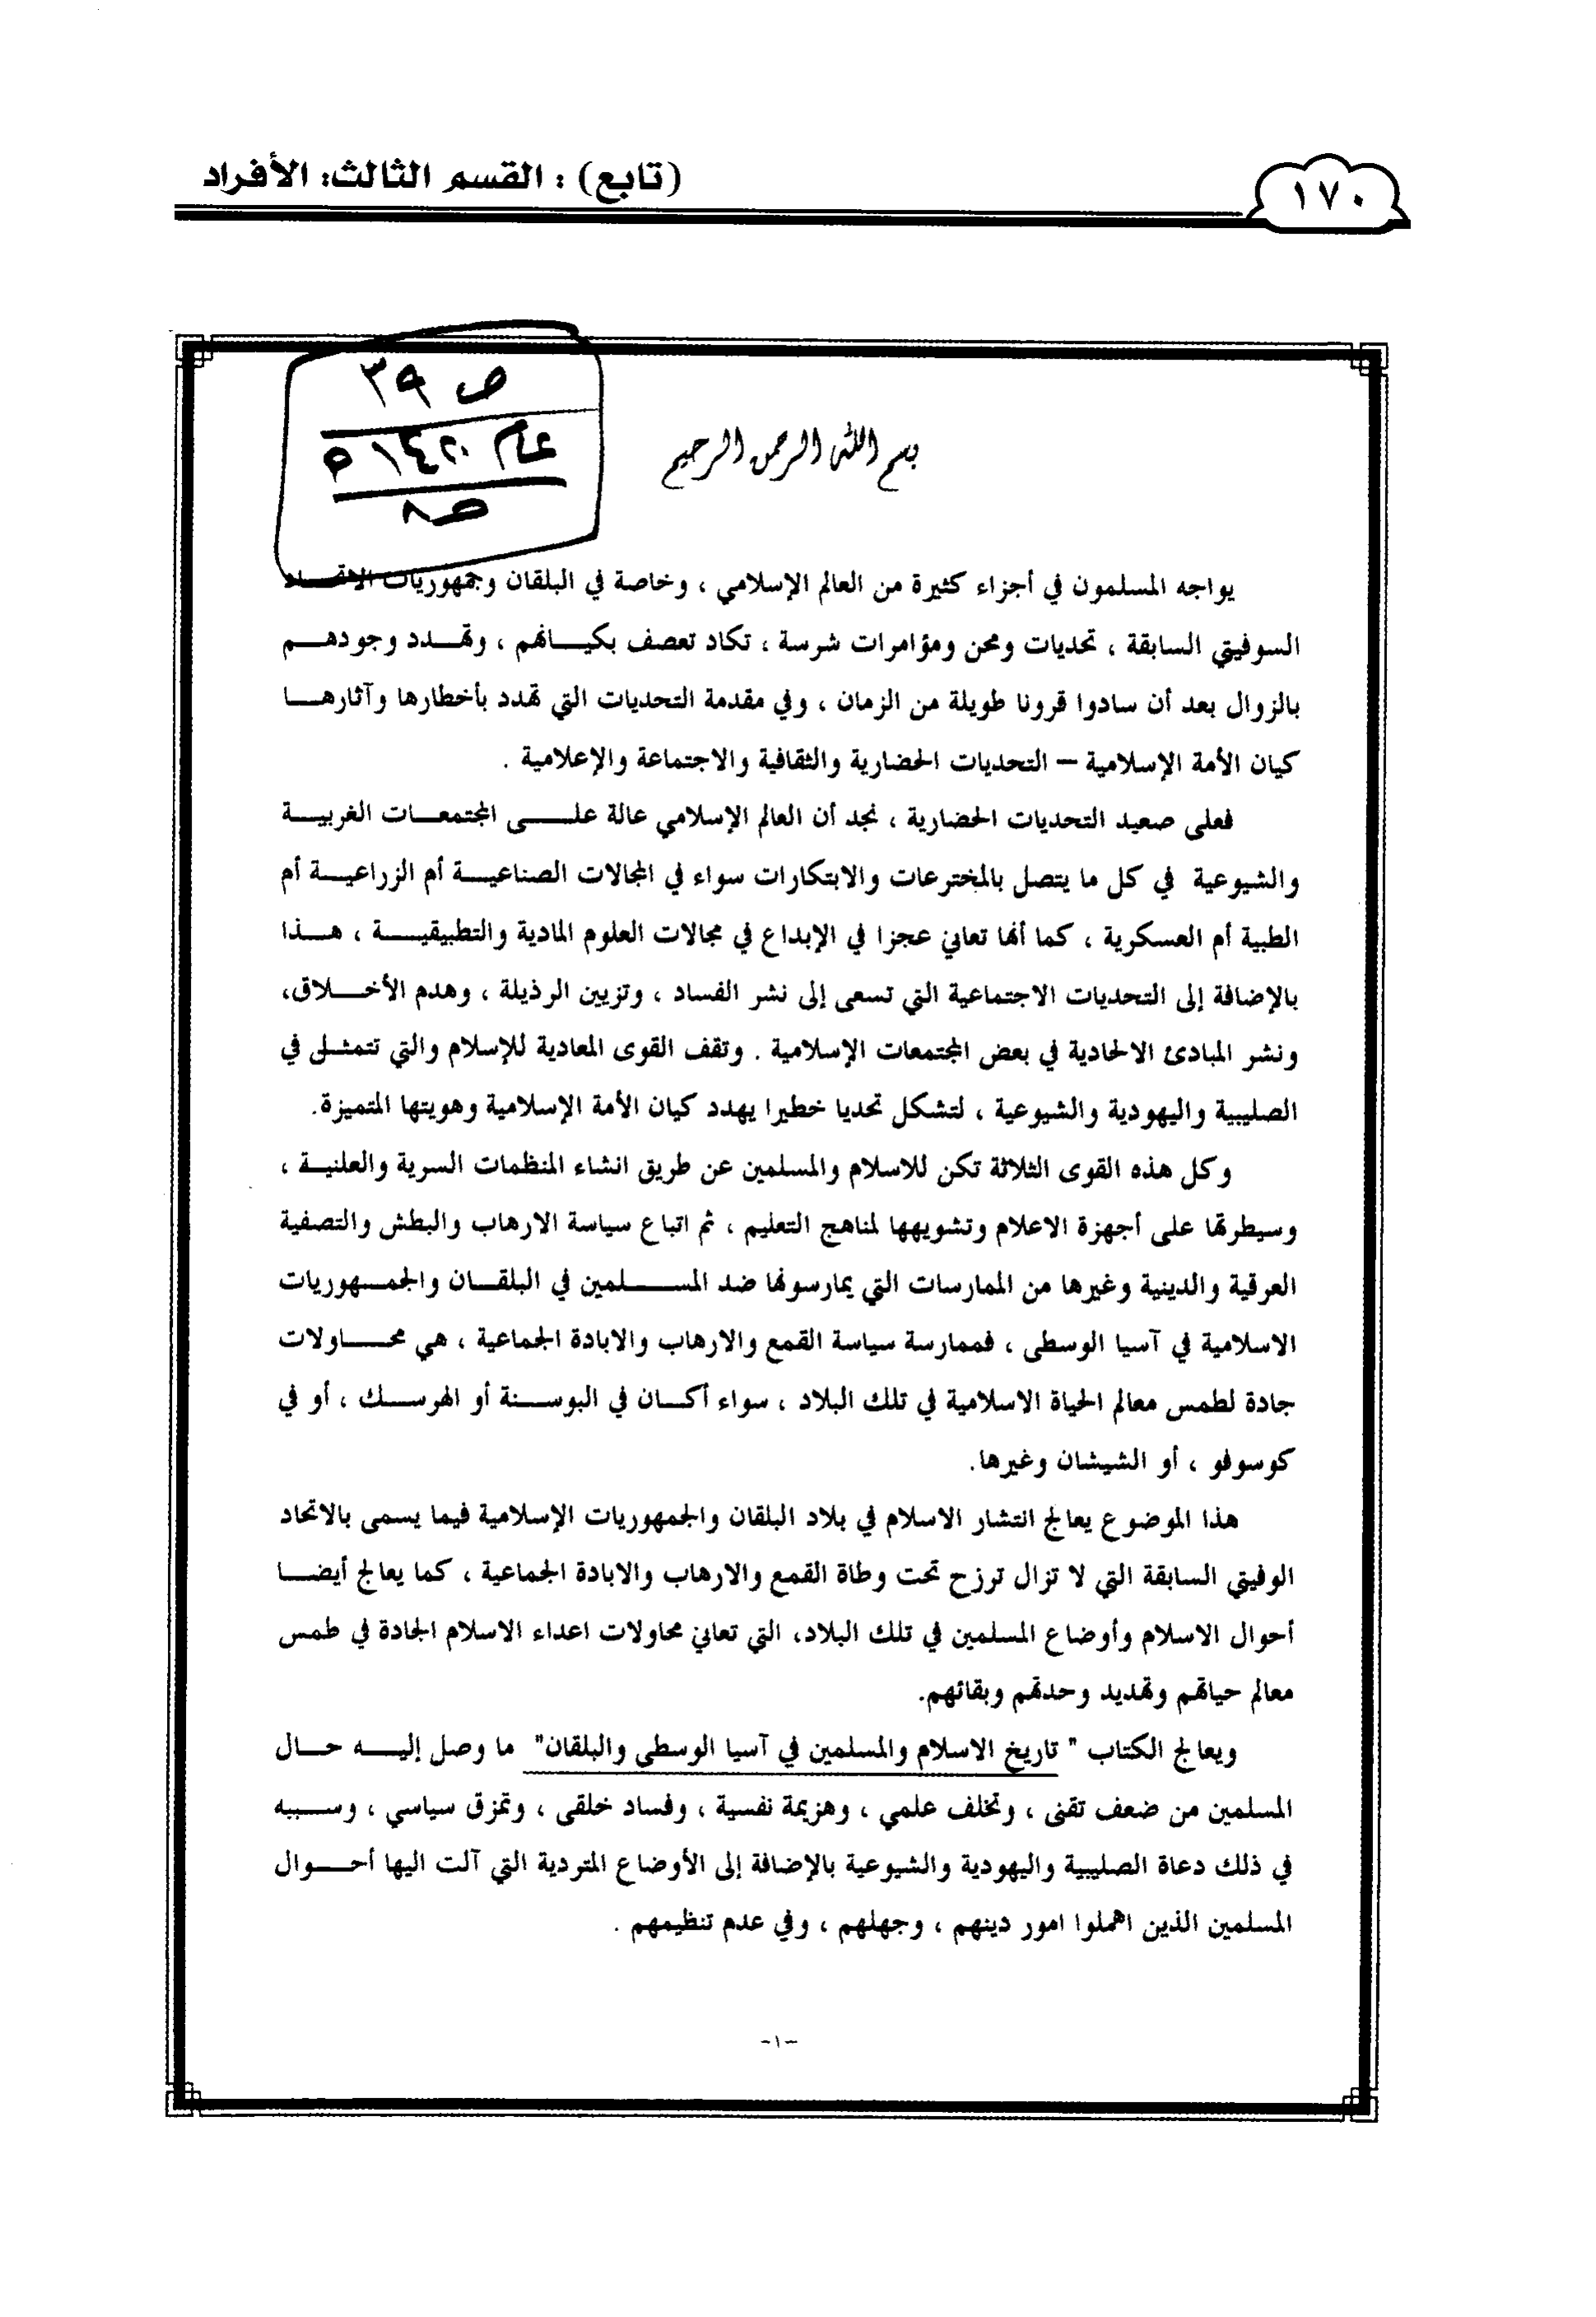 ١٧٠
(تابع) : القسم الثالث: الأفراد
ص ٣٩
عام ١٤٢٠ ه
ص٨
بسم الله الرحمن الرحيم
يواجه المسلمون في أجزاء كثيرة من العالم الإسلامي ، وخاصة في البلقان وجمهوريات
السوفيتي السابقة ، تحديات ومحن ومؤامرات شرسة ، تكاد تعصف بكيانهم ، وتهدد وجودهم
بالزوال بعد أن سادوا قرونا طويلة من الزمان ، وفي مقدمة التحديات التي تهدد بأخطارها وآثارها
كيان الأمة الإسلامية – التحديات الحضارية والثقافية والاجتماعة والإعلامية .
فعلى صعيد التحديات الحضارية ، نجد أن العالم الإسلامي عالة على المجتمعات الغربية
والشيوعية في كل ما يتصل بالمخترعات والابتكارات سواء في المجالات الصناعية أم الزراعية أم
الطبية أم العسكرية ، كما أنها تعاني عجزا في الإبداع في مجالات العلوم المادية والتطبيقية ، هذا
بالإضافة إلى التحديات الاجتماعية التي تسعى إلى نشر الفساد ، وتزيين الرذيلة ، وهدم الأخلاق،
ونشر المبادئ الالحادية في بعض المجتمعات الإسلامية . وتقف القوى المعادية للإسلام والتي تتمثلى في
الصليبية واليهودية والشيوعية ، لتشكل تحديا خطيرا يهدد كيان الأمة الإسلامية وهويتها المتميزة.
وكل هذه القوى الثلاثة تكن للاسلام والمسلمين عن طريق انشاء المنظمات السرية والعلنية ،
وسيطرتها على أجهزة الاعلام وتشويهها لمناهج التعليم ، ثم اتباع سياسة الارهاب والبطش والتصفية
العرقية والدينية وغيرها من الممارسات التي يمارسونها ضد المسلمين في البلقان والجمهوريات
الاسلامية في آسيا الوسطى ، فممارسة سياسة القمع والارهاب والابادة الجماعية ، هي محاولات
جادة لطمس معالم الحياة الاسلامية في تلك البلاد ، سواء أكان في البوسنة أو الهرسك ، أو في
كوسوفو ، أو الشيشان وغيرها.
هذا الموضوع يعالج انتشار الاسلام في بلاد البلقان والجمهوريات الإسلامية فيما يسمى بالاتحاد
الوفيتي السابقة التي لا تزال ترزح تحت وطاة القمع والارهاب والابادة الجماعية ، كما يعالج أيضا
أحوال الاسلام وأوضاع المسلمين في تلك البلاد، التي تعاني محاولات اعداء الاسلام الجادة في طمس
معالم حياتهم وتهديد وحدتهم وبقائهم.
ويعالج الكتاب " تاريخ الاسلام والمسلمين في آسيا الوسطى والبلقان" ما وصل إليه حال
المسلمين من ضعف تقنى ، وتخلف علمي ، وهزيمة نفسية ، وفساد خلقى ، وتمزق سياسي ، وسببه
في ذلك دعاة الصليبية واليهودية والشيوعية بالإضافة إلى الأوضاع المتردية التي آلت اليها أحوال
المسلمين الذين اهملوا امور دينهم ، وجهلهم ، وفي عدم تنظيمهم .
-١-